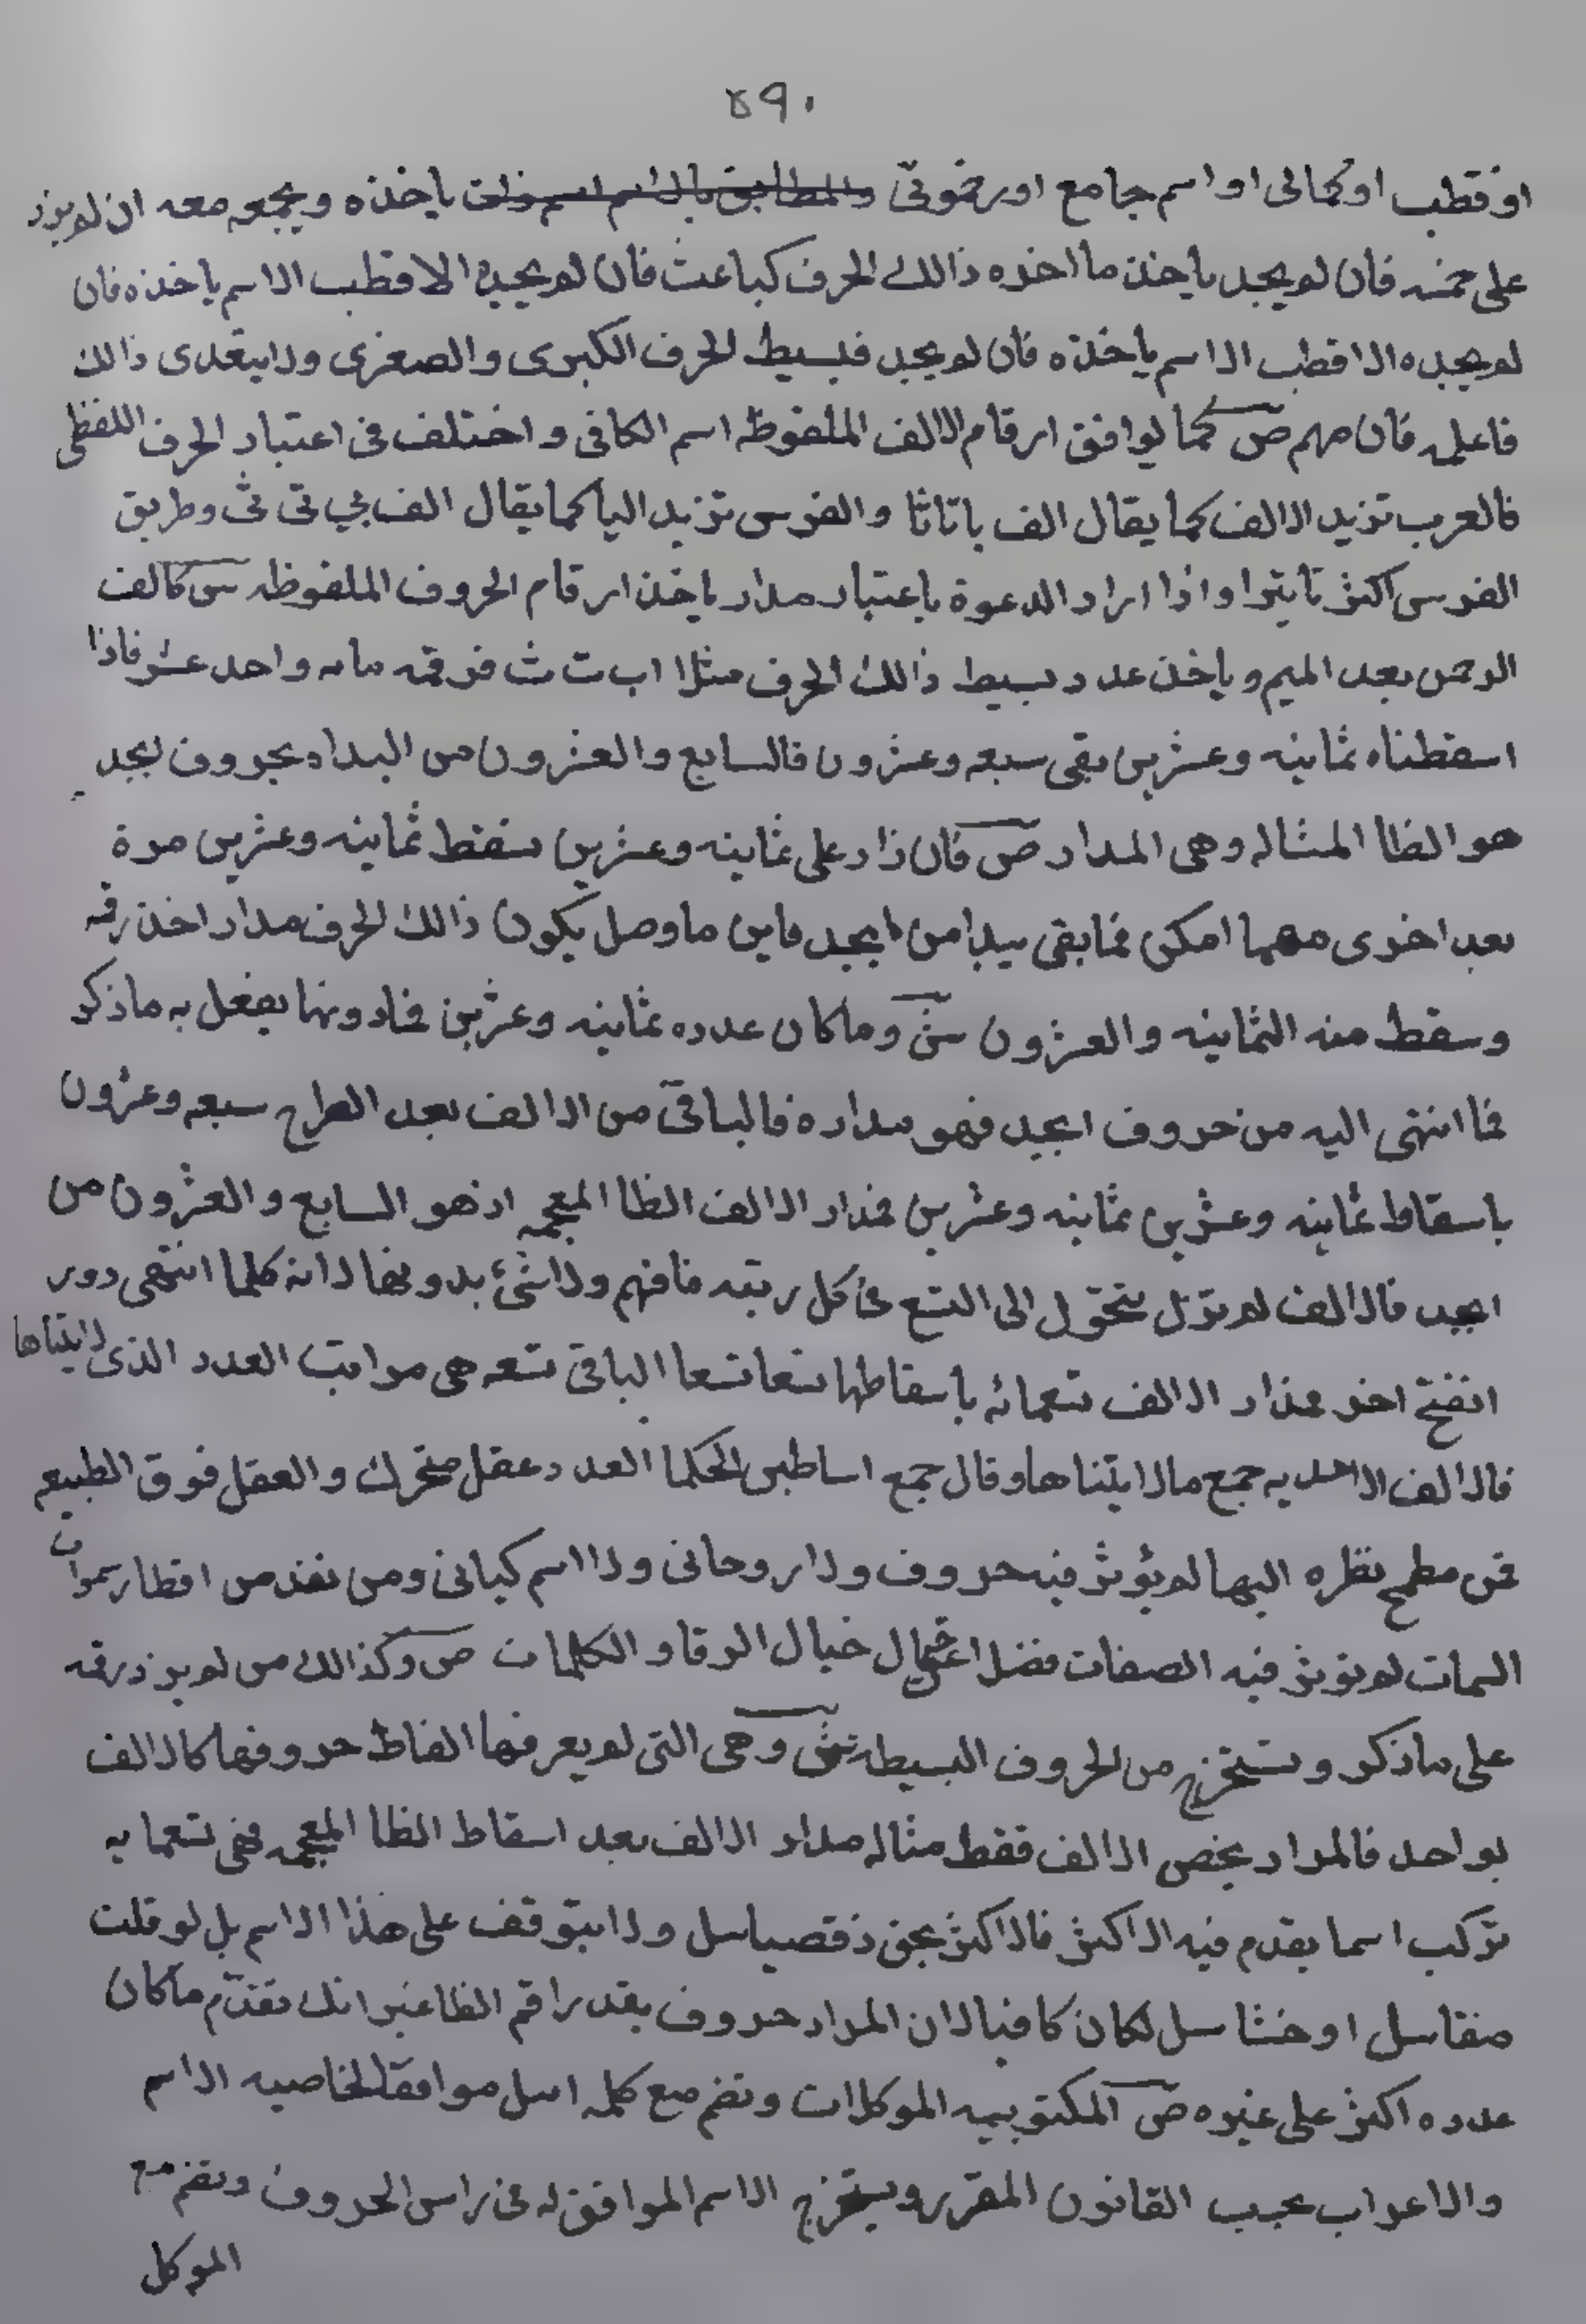 ٥٩٠
او قطب او كمالى او اسم جامع او رضوتى والمطابق بالاسم اسم ذات ياخذه ويجمع معه ان لم يزد
على خمسه فان لم يجد ياخذ ما اخذه ذالك الحرف كباعث فان لم يجده الا قطب الاسم ياخذه فان
لم يجده الا قطب الاسم ياخذه فان لم يجد فبسيط الحرف الكبرى والصغرى ولا يتعدى ذالك
فاعلمه فان مهم ص كما يوافق ارقام الالف الملفوظه اسم الكافى واختلف فى اعتبار الحرف اللفظى
فالعرب تزيد الالف كما يقال الف با تا ثا والفرس تزيد اليا كما يقال الف بى تى ثى وطريق
الفرس اكثر تاثيرا واذا اراد الدعوة باعتبار مدار ياخذ ارقام الحروف الملفوظه ش كالف
الرحمن بعد الميم وياخذ عدد بسيط ذالك الحرف مثلا ا ب ت ث فرقمه مايه واحد عشر فاذا
اسقطناه ثمانيه وعشرين بقى سبعه وعشرون فالسابع والعشرون من البداه بحروف ابجد
هو الظا المشاله وهى المدار ص فان زاد على ثمانيه وعشرين سقط ثمانيه وعشرين مرة
بعد اخرى مهما امكن فما بقى يبدا من ابجد فاين ما وصل يكون ذالك الحرف مدار اخذ رقمه
وسقط منه الثمانيه والعشرون ش وما كان عدده ثمانيه وعشرين فما دونها يفعل به ما ذكر
فما انتهى اليه من حروف ابجد فهو مداره فالباقى من الالف بعد الطرح سبعه وعشرون
باسقاط ثمانيه وعشرين ثمانيه وعشرين فمدار الالف الظا المعجمه اذ هو السابع والعشرون من
ابجد فالالف لم تزل تتحول الى التسع فى كل رتبه فافهم ولا شئ بدونها لانه كلما انتهى دور
انفتح اخر فمدار الالف تسعمائه باسقاطها تسعا تسعا الباقى تسعه هى مراتب العدد الذى لا يتناها
فالالف الاحديه جمع ما لا يتناها وقال جمع اساطين الحكما العدد عقل متحرك والعقل فوق الطبيعه
فمن مطمح نظره اليها لم يؤثر فيه حروف ولا روحانى ولا اسم كيانى ومن نفذ من اقطار سموات
السمات لم تؤثر فيه الصفات فضلا عن خيال الرقا والكلمات ص وكذالك من لم يزد رقمه
على ما ذكر وتستخرج من الحروف البسيطه ش وهى التى لم يعرفها الفاظ حروفها كالالف
بواحد فالمراد يخص الالف فقط مثاله مدار الالف بعد اسقاط الظا المعجمه فهى تسعمايه
تركب اسما يقدم فيه الاكثر فالاكثر ولا يتوقف على هذا الاسم بل لو قلت
لكان كافيا لان المراد حروف بقدر راقم الظا غير انك تقدم ما كان
عدده اكثر على غيره ص المكتوبيه الموكلات وتضم مع كلمه ايل موافقا لخاصيه الاسم
والاعراب بحسب القانون المقرر ويستخرج الاسم الموافق له فى راس الحروف وتضم مع
الموكل